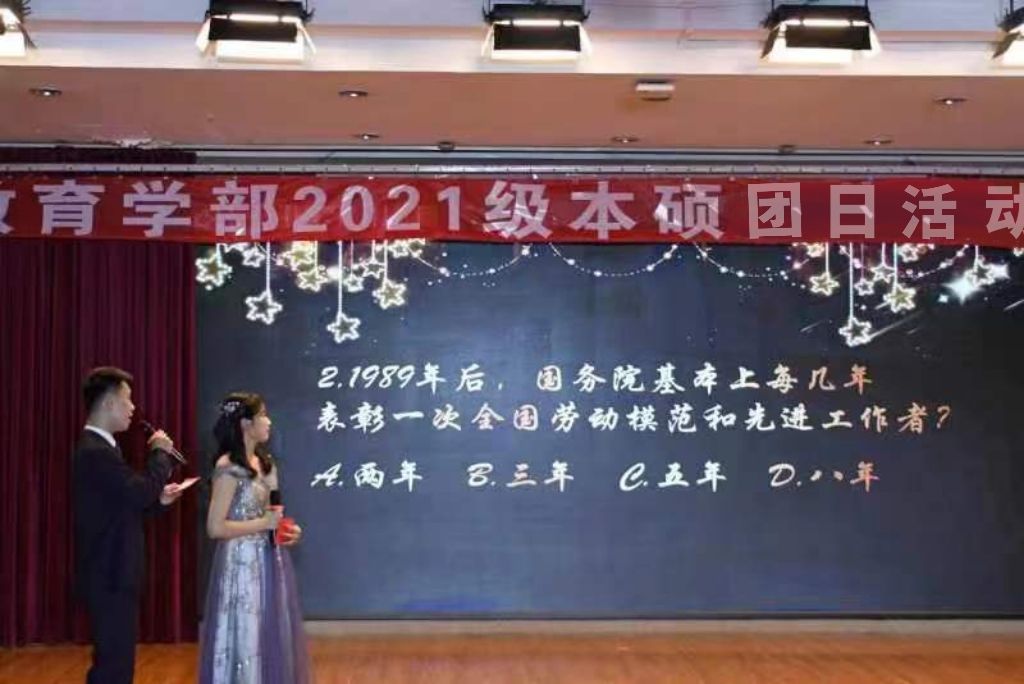 教育学部2021级本硕团日活动
2.1989年后，国务院基本上每几年
表彰一次全国劳动模范和先进工作者?
A.两年 B.三年 C.五年 D.八年